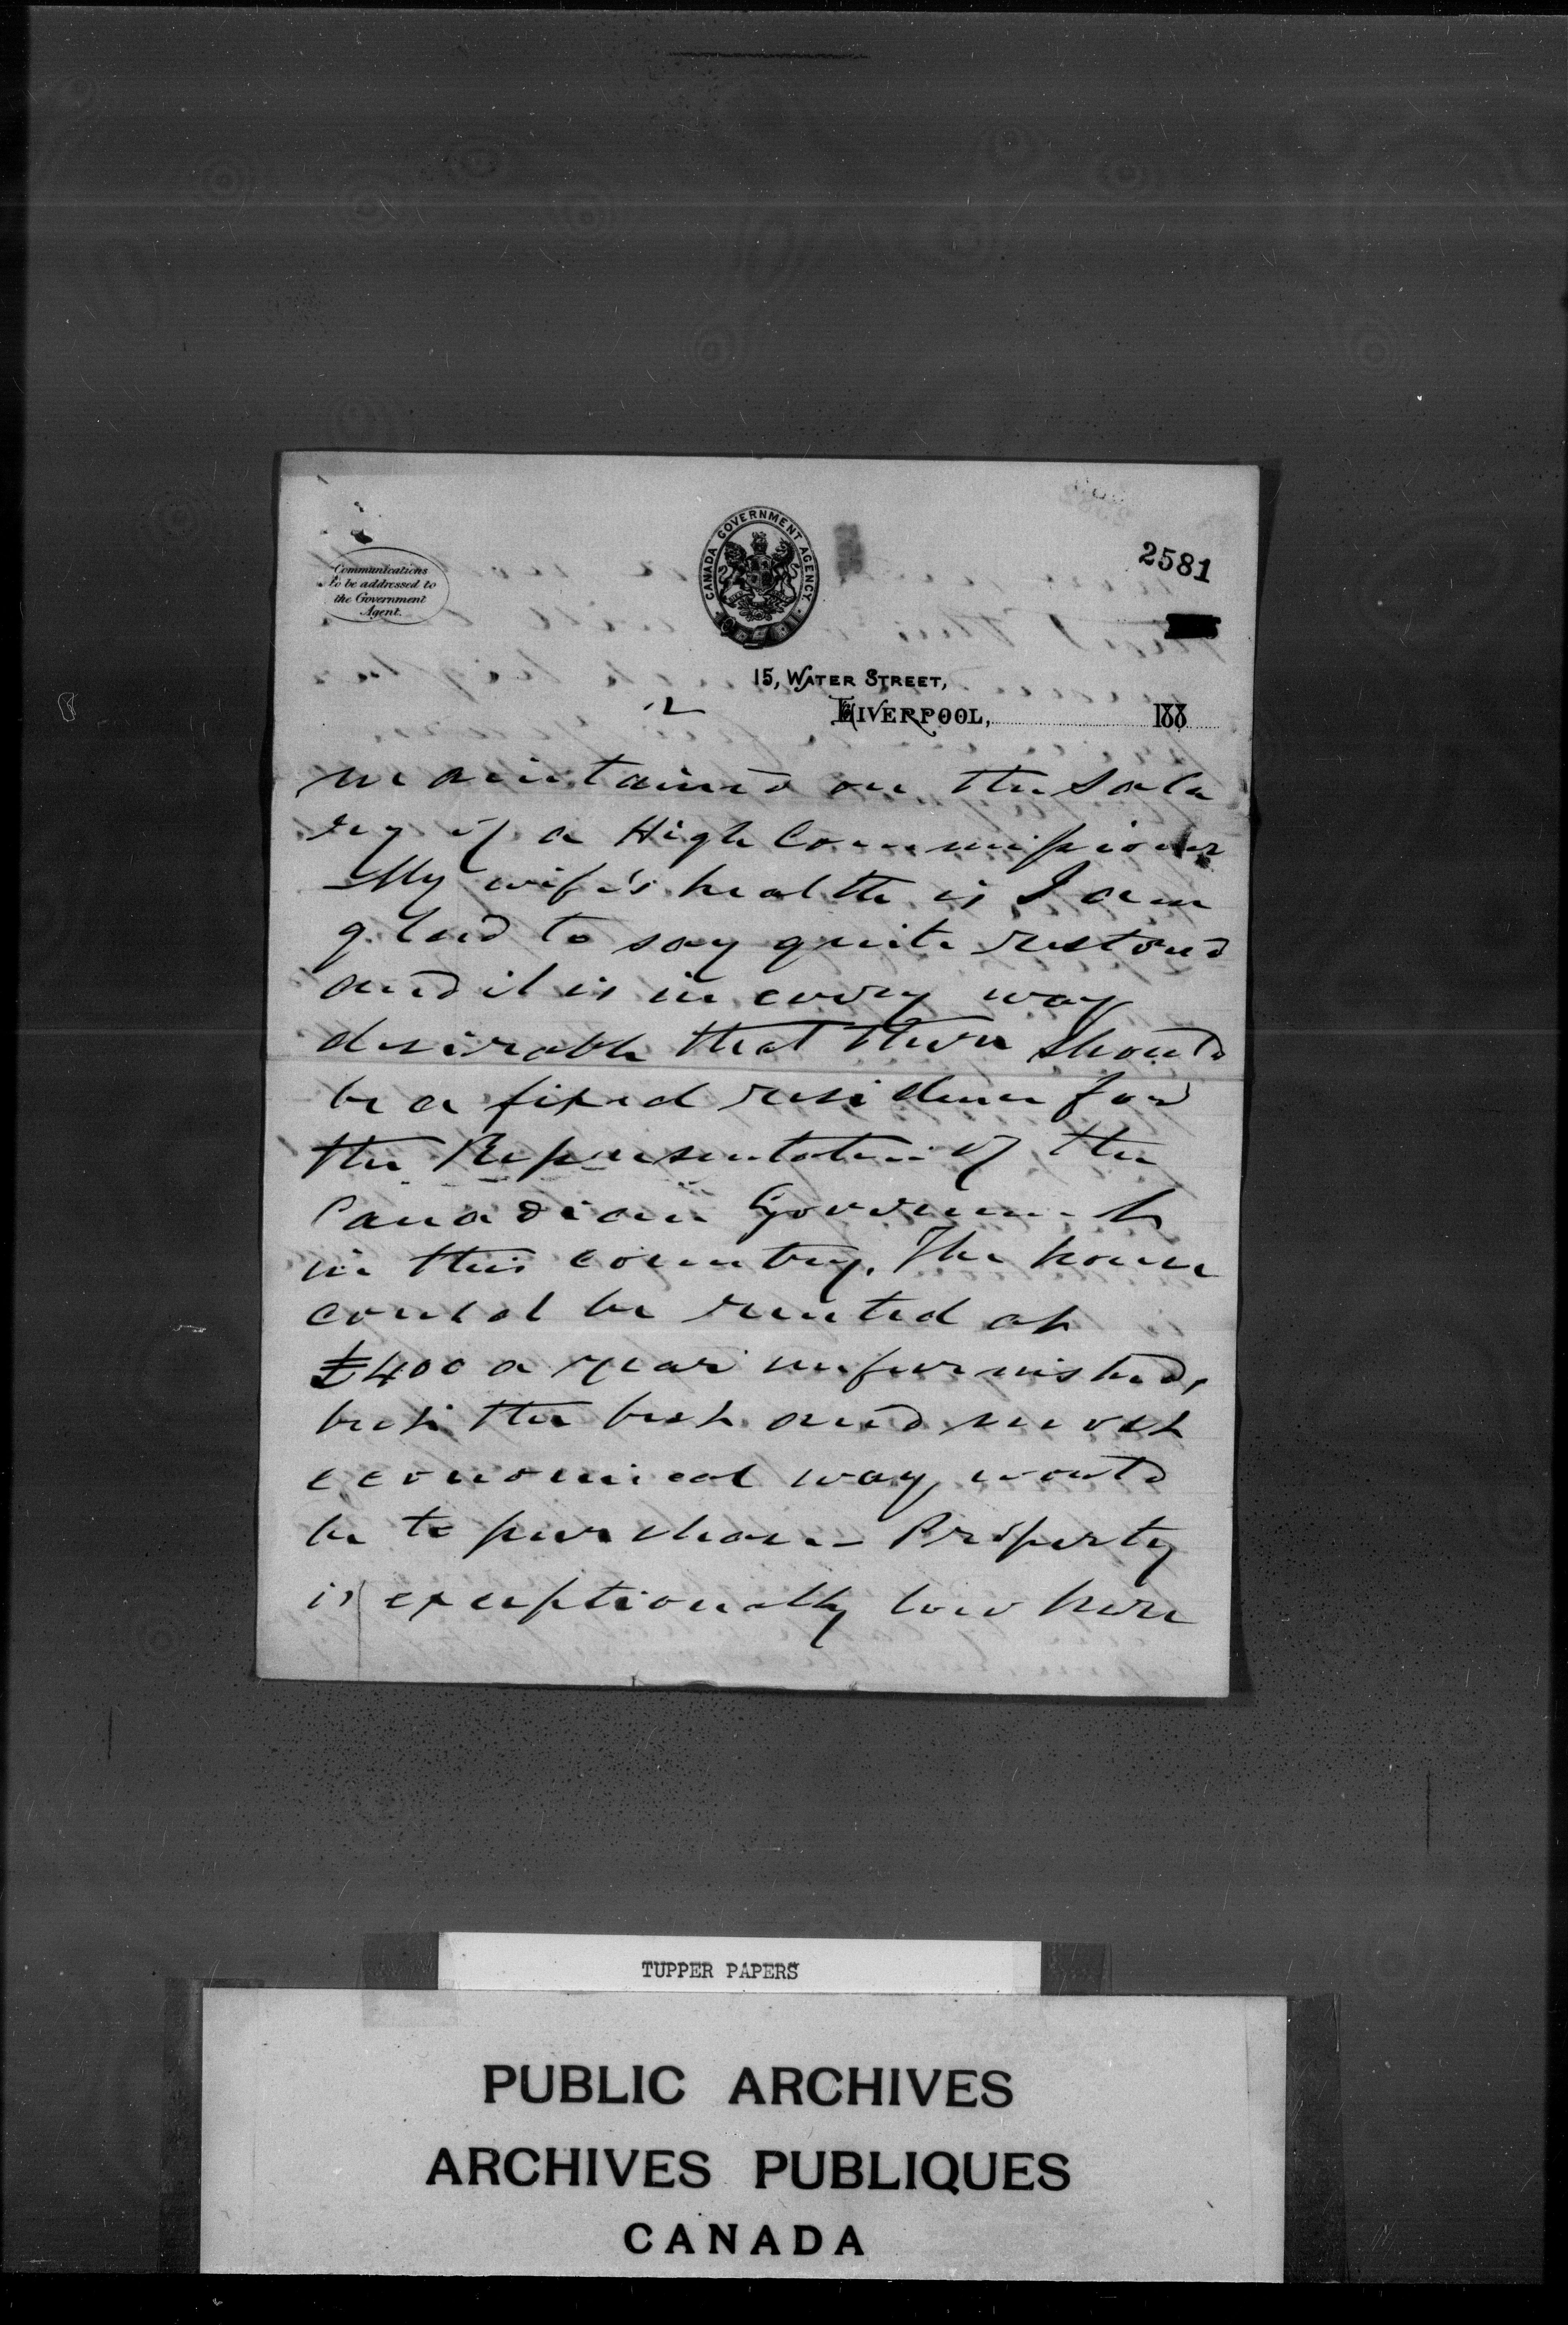 2581
Communications
to be addressed to
the Government
Agent.
CANADA GOVERNMENT AGENCY
15, WATER STREET,
LIVERPOOL, 188
2
maintained on the sala
ry of a High Commissioner
My wife's health is I am
glad to say quite restored
and it is in every way
desirable that there should
be a fixed residence for
the Representative of the
Canadian Government
in this country. The house
could be rented at
£400 a year unfurnished,
but the best and most
economical way would
be to purchase - Property
is exceptionally low here
TUPPER PAPERS
PUBLIC ARCHIVES
ARCHIVES PUBLIQUES
CANADA